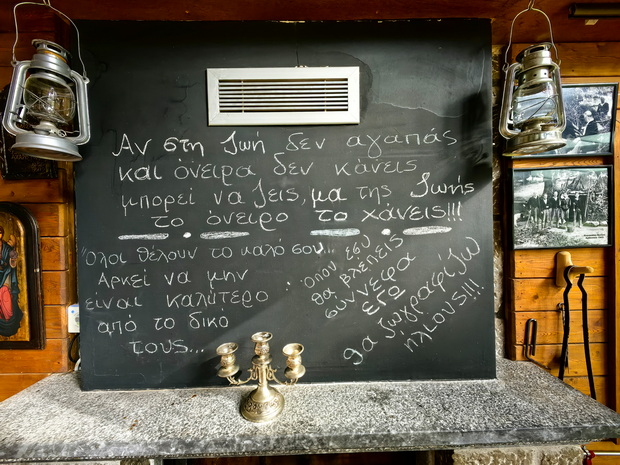 Αν στη Ζωή δεν αγαπάς
και όνειρα δεν κάνεις
μπορεί να ζεις, μα της Ζωής
το όνειρο το χάνεις!!!
Όλοι θέλουν το καλό σου...
Αρκεί να μην
είναι καλύτερο
από το δικό
τους...
Όπου εσύ
θα βλέπεις
σύννεφα
εγώ
θα ζωγραφίζω
ήλιους!!!